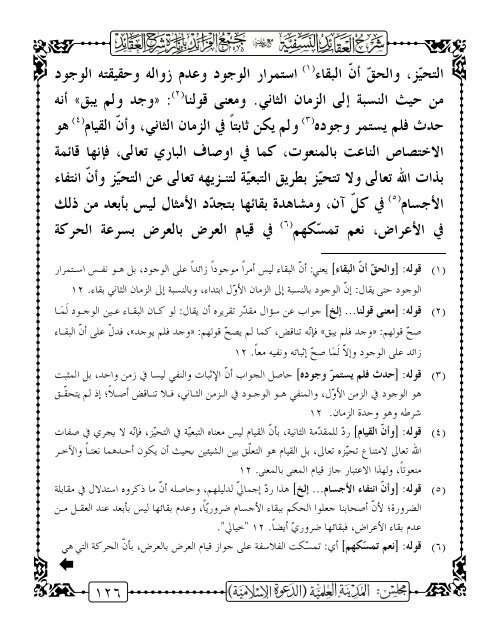 شرح العقائد النسفية مع جمع الفرائد بإنارة شرح العقائد
التحيّز، والحقّ أنّ البقاء(١) استمرار الوجود وعدم زواله وحقيقته الوجود
من حيث النسبة إلى الزمان الثاني. ومعنى قولنا(٢): «وجد ولم يبق» أنه
حدث فلم يستمر وجوده(٣) ولم يكن ثابتاً في الزمان الثاني، وأنّ القيام(٤) هو
الاختصاص الناعت بالمنعوت، كما في اوصاف الباري تعالى، فإنها قائمة
بذات الله تعالى ولا تتحيّز بطريق التبعيّة لتنـزيهه تعالى عن التحيّز وأنّ انتفاء
الأجسام(٥) في كلّ آن، ومشاهدة بقائها بتجدّد الأمثال ليس بأبعد من ذلك
في الأعراض، نعم تمسّكهم(٦) في قيام العرض بالعرض بسرعة الحركة
(١) قوله: [والحقّ أنّ البقاء] يعني: أنّ البقاء ليس أمراً موجوداً زائداً على الوجود، بل هـو نفـس استمـرار
الوجود حتى يقال: إنّ الوجود بالنسبة إلى الزمان الأوّل ابتداء، وبالنسبة إلى الزمان الثاني بقاء. ١٢
(٢) قوله: [معنى قولنا... إلخ] جواب عن سؤال مقدّر تقريره أن يقال: لو كـان البقـاء عـين الوجـود لَمَا
صحّ قولهم: «وجد فلم يبق» فإنّه تناقض، كما لم يصحّ قولهم: «وجد فلم يوجد»، فدلّ على أنّ البقـاء
زائد على الوجود وإلاّ لَمَا صحّ إثباته ونفيه معاً. ١٢
(٣) قوله: [حدث فلم يستمرّ وجوده] حاصل الجواب أنّ الإثبات والنفي ليسا في زمن واحد، بل المثبت
هو الوجود في الزمن الأوّل، والمنفي هـو الوجـود في الـزمن الثـاني، فـلا تنـاقض أصـلاً؛ إذ لم يتحقّـق
شرطه وهو وحدة الزمان. ١٢
(٤) قوله: [وأنّ القيام] ردّ للمقدّمة الثانية، بأنّ القيام ليس معناه التبعيّة في التحيّز، فإنّه لا يجري في صفات
الله تعالى لامتناع تحيّزه تعالى، بل القيام هو التعلّق بين الشيئين بحيث أن يكون أحـدهما نعتـاً والآخـر
منعوتاً، ولهذا الاعتبار جاز قيام المعنى بالمعنى. ١٢
(٥) قوله: [وأنّ انتفاء الأجسام... إلخ] هذا ردّ إجماليّ لدليلهم، وحاصله أنّ ما ذكروه استدلال في مقابلة
الضرورة؛ لأنّ أصحابنا جعلوا الحكم ببقاء الأجسام ضروريّاً، وعدم بقائها ليس بأبعد عند العقـل مـن
عدم بقاء الأعراض، فبقائها ضروريّ أيضاً. ١٢ "خيالي".
(٦) قوله: [نعم تمسكهم] أي: تمسّكت الفلاسفة على جواز قيام العرض بالعرض، بأنّ الحركة التي هي
مجلس: المدينة العلمية (الدعوة الإسلامية)
١٢٦